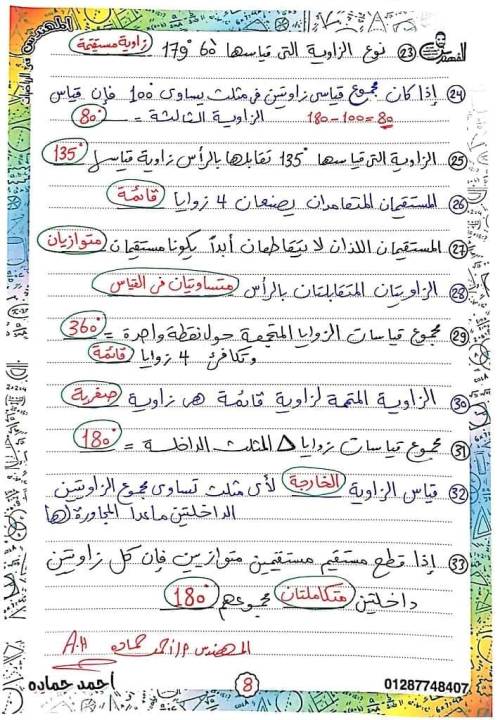 المهندس في الرياضيات
المهندس
(23) نوع الزاوية التى قياسها 60َ 179° زاوية مستقيمة
(24) إذا كان مجموع قياسى زاوتين فى مثلث يساوى 100° فإن قياس
الزاوية الثالثة = 80° 180-100=80
(25) الزاوية التى قياسها 135° تقابلها بالرأس زاوية قياسها 135°
(26) المستقيمان المتعامدان يصنعان 4 زوايا قائمة
(27) المستقيمان اللذان لا يتقاطعان أبداً يكونا مستقيمان متوازيان
(28) الزاويتان المتقابلتان بالرأس متساويتان فى القياس
(29) مجموع قياسات الزوايا المتجمعة حول نقطة واحدة = 360°
وتكافئ 4 زوايا قائمة
(30) الزاوية المتممة لزاوية قائمة هى زاوية صفرية
(31) مجموع قياسات زوايا Δ المثلث الداخلة = 180°
(32) قياس الزاوية الخارجة لأى مثلث تساوى مجموع الزاويتين
الداخلتين ماعدا المجاورة لها
(33) إذا قطع مستقيم مستقيمين متوازيين فإن كل زاويتين
داخلتين متكاملتان مجموعهم 180°
المهندس م/ أحمد حماده A.H
احمد حماده 8 01287748407